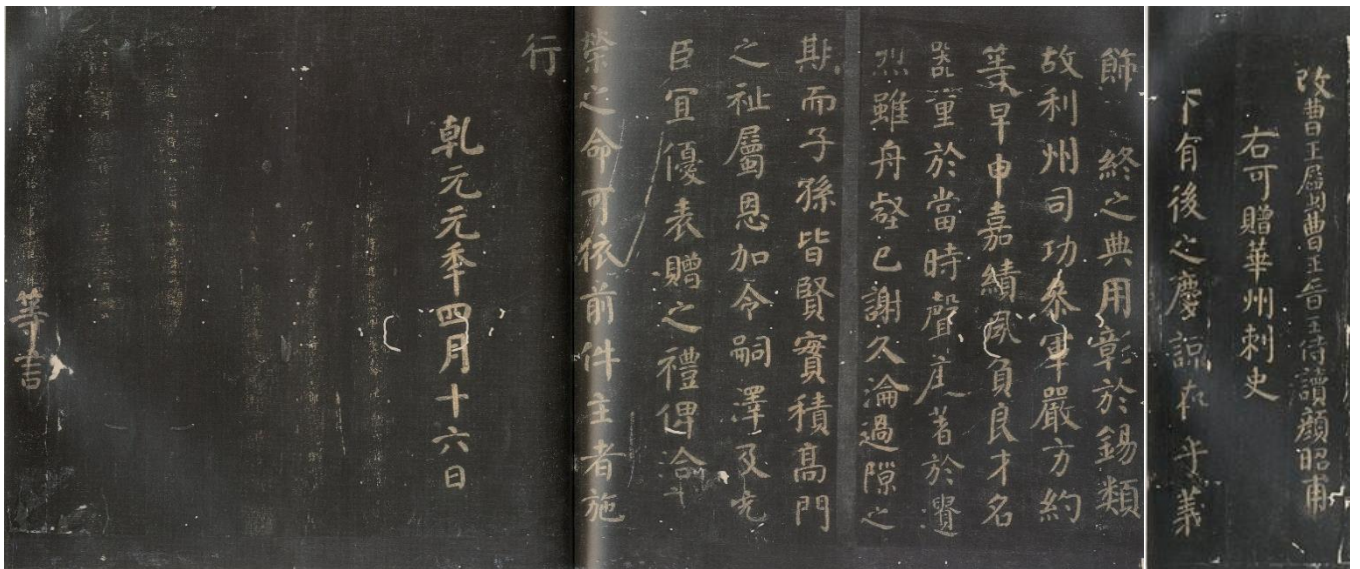 曹王屬曹王侍讀顏昭甫
右可贈華州刺史
下有後之慶諒在乎義
飾終之典用彰於錫類
故利州司功參軍嚴方約
等早申嘉績夙負良才名
器重於當時聲塵著於遺
烈雖舟壑已謝久淪過隙之
期而子孫皆賢實積高門
之祉屬恩加令嗣澤及
臣宜優表贈之禮俾洽
榮之命可依前件主者施
行
乾元元年四月十六日
等書